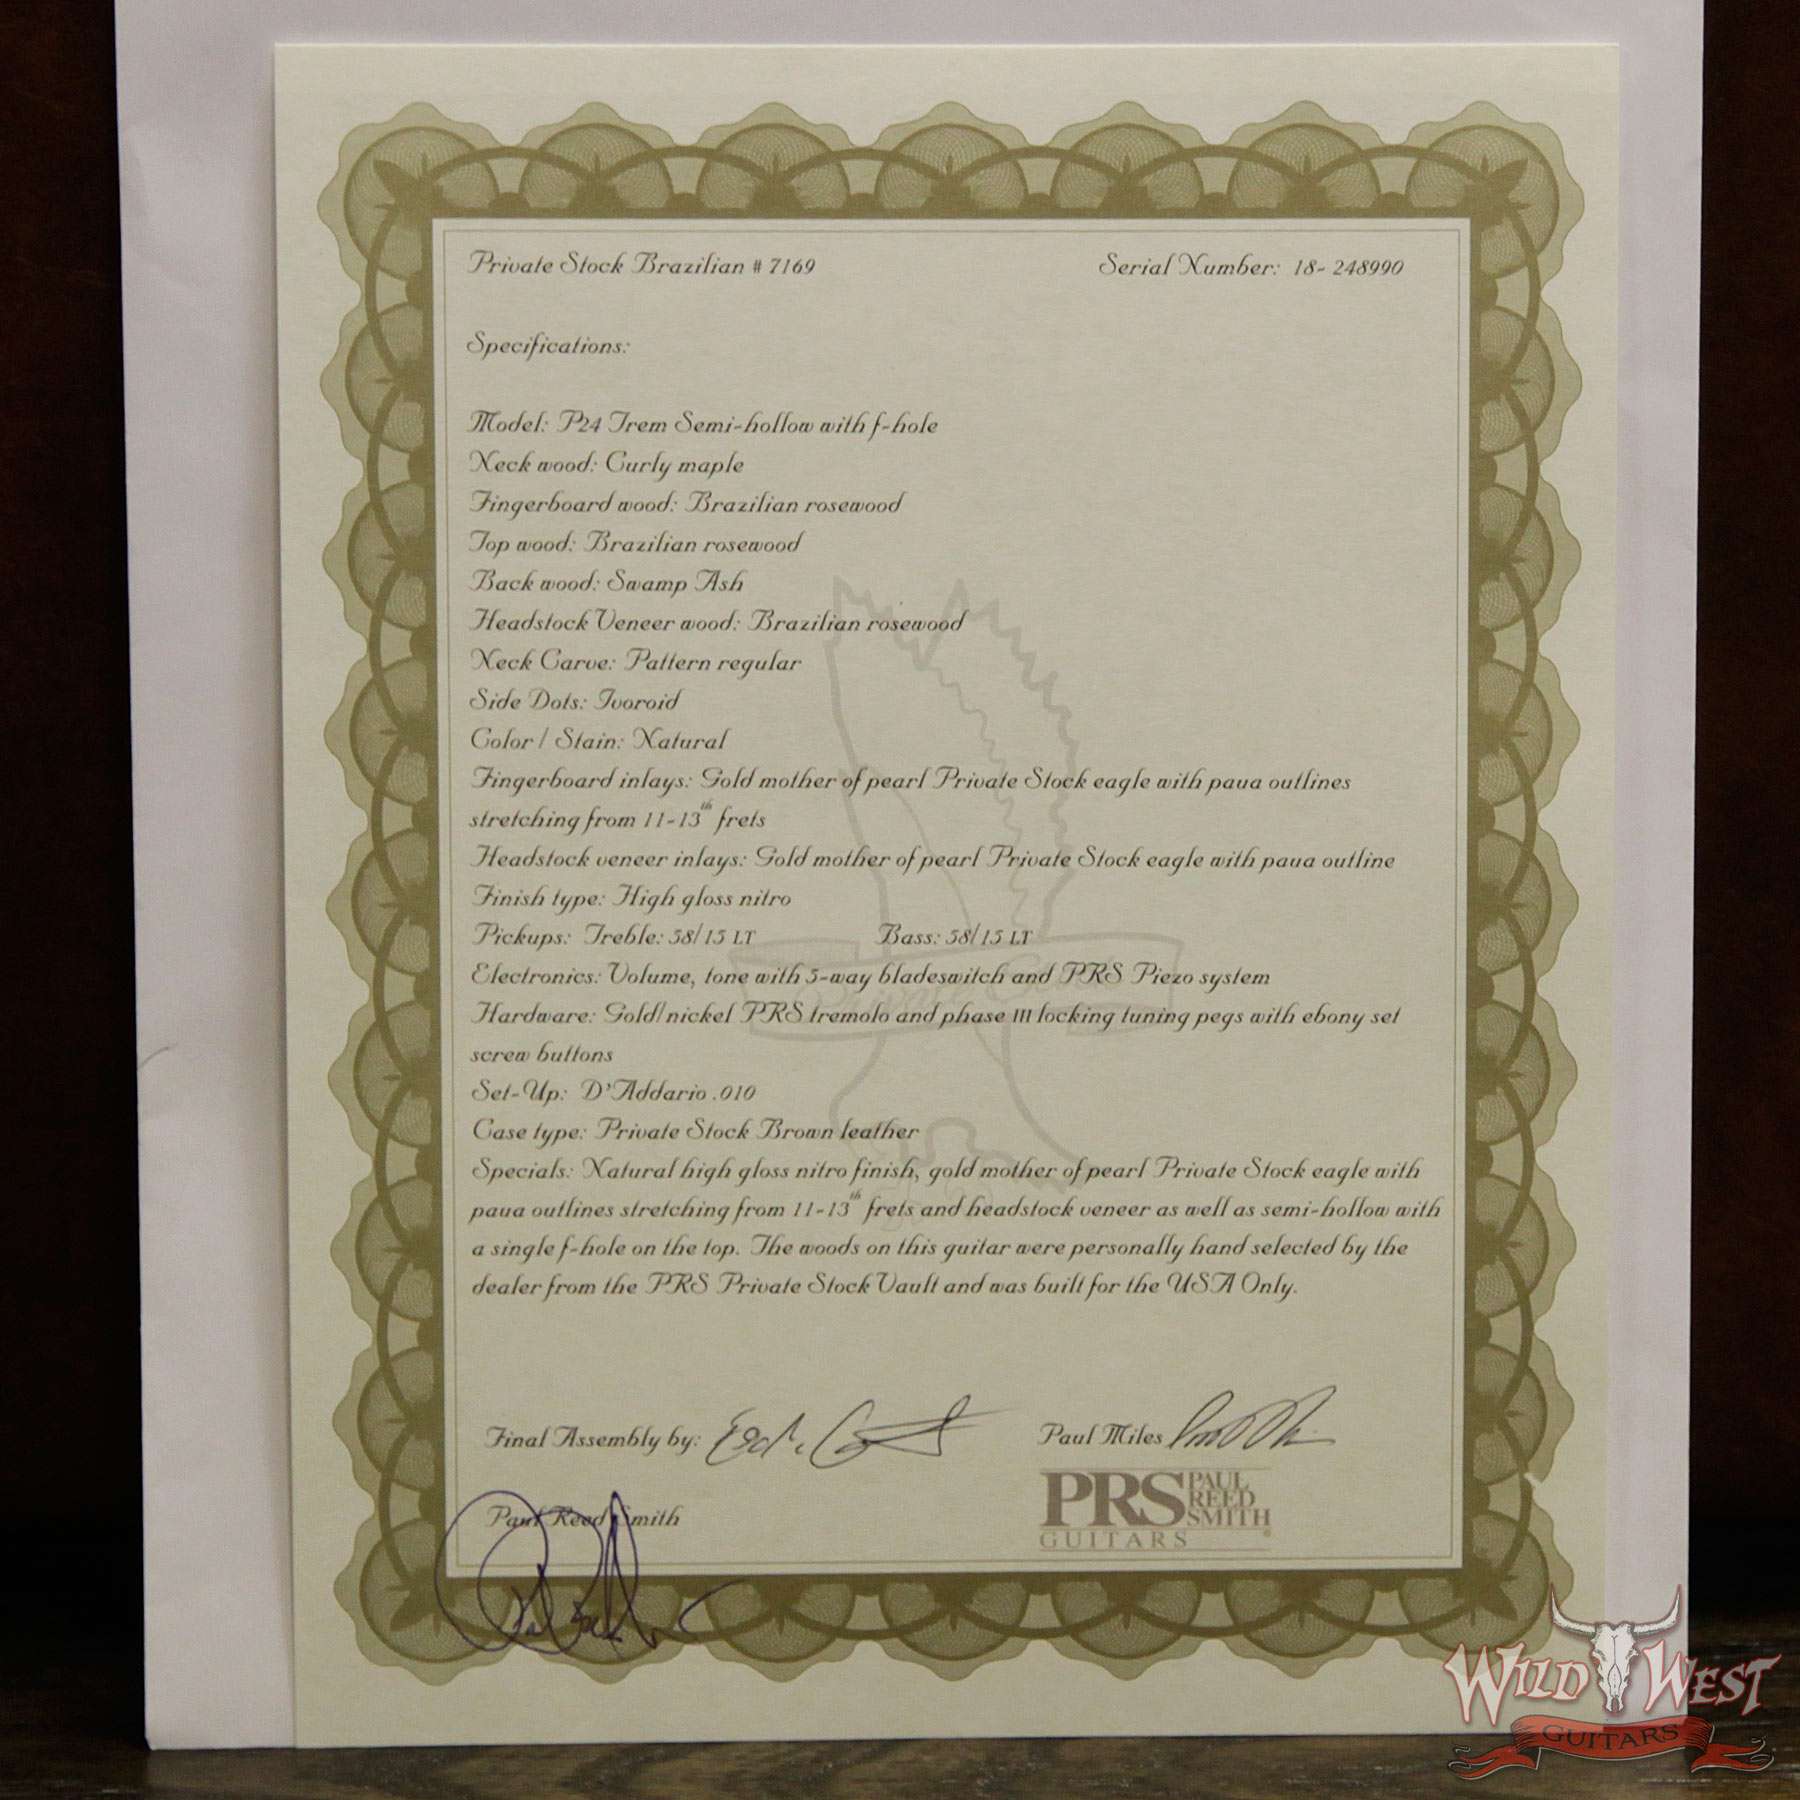 Private Stock Brazilian # 7169 Serial Number: 18- 248990
Specifications:
Model: P24 Trem Semi-hollow with f-hole
Neck wood: Curly maple
Fingerboard wood: Brazilian rosewood
Top wood: Brazilian rosewood
Back wood: Swamp Ash
Headstock Veneer wood: Brazilian rosewood
Neck Carve: Pattern regular
Side Dots: Ivoroid
Color / Stain: Natural
Fingerboard inlays: Gold mother of pearl Private Stock eagle with paua outlines
stretching from 11-13th frets
Headstock veneer inlays: Gold mother of pearl Private Stock eagle with paua outline
Finish type: High gloss nitro
Pickups: Treble: 58/15 LT Bass: 58/15 LT
Electronics: Volume, tone with 5-way bladeswitch and PRS Piezo system
Hardware: Gold/nickel PRS tremolo and phase III locking tuning pegs with ebony set
screw buttons
Set-Up: D'Addario .010
Case type: Private Stock Brown leather
Specials: Natural high gloss nitro finish, gold mother of pearl Private Stock eagle with
paua outlines stretching from 11-13th frets and headstock veneer as well as semi-hollow with
a single f-hole on the top. The woods on this guitar were personally hand selected by the
dealer from the PRS Private Stock Vault and was built for the USA Only.
Final Assembly by: Paul Miles
Paul Reed Smith
PRS PAUL REED SMITH
GUITARS
WILD WEST
GUITARS